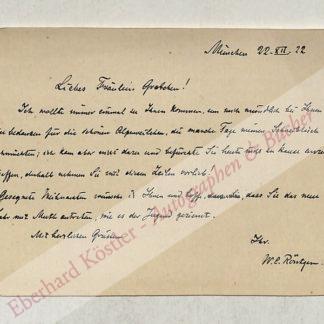 München 22.XII.22
Liebes Fräulein Gretchen!
Ich wollte immer einmal zu Ihnen kommen, um mich mündlich bei Ihnen
zu bedanken für die schönen Alpenveilchen, die manche Tage meinen Schreibtisch
schmückten; ich kam aber nie dazu und Sie heute zu Hause
treffen, deshalb nehmen Sie mit diesen Zeilen vorlieb.
Gesegnete Weihnachten wünsche ich Ihnen und hoffe, dass Sie das neue
Jahr mit Muth antreten, wie es der Jugend geziemt.
Mit herzlichen Grüssen
Ihr
W. C. Röntgen.
Eberhard Köstler - Autographen & Bücher